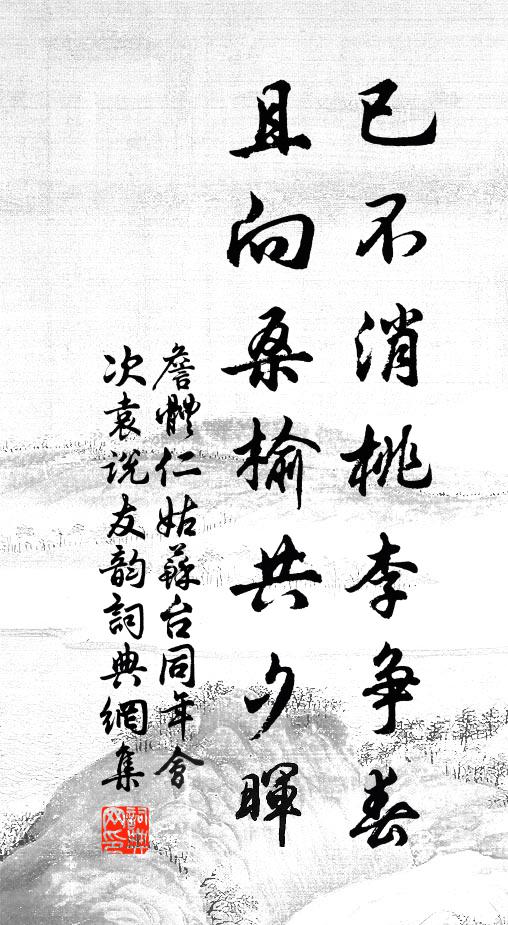 已不消桃李争春
且向桑榆共夕暉
詹體仁姑蘇台同年會
次袁说友韵詞典網集